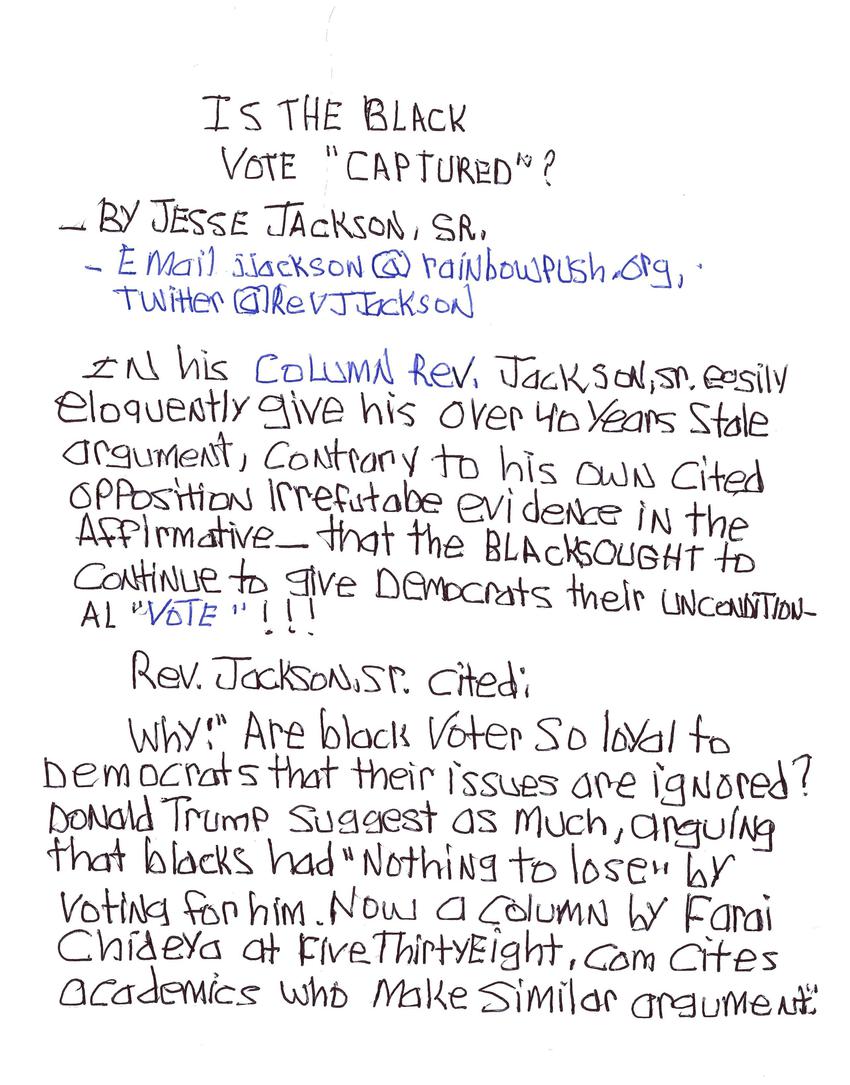 IS THE BLACK
VOTE "CAPTURED"?
- BY JESSE JACKSON, SR.
- EMail jjackson@rainbowpush.org,
Twitter @RevJJackson
IN his COLUMN Rev. JACKSON, sr. easily
eloquently give his over 40 Years Stale
argument, Contrary to his OWN Cited
OPPOSITION Irrefutabe evidence IN the
Affirmative- that the BLACKSOUGHT to
CONTINUE to give DEMOCRATS their UNCONDITION-
AL "VOTE" !!!
Rev. JACKSON, Sr. Cited;
Why!" Are black Voter So loyal to
Democrats that their issues are ignored?
Donald Trump Suggest as Much, arguing
that blacks had "Nothing to lose" by
Voting for him. Now a Column by Farai
Chideya at FiveThirtyEight, Com Cites
academics who Make Similar argument"